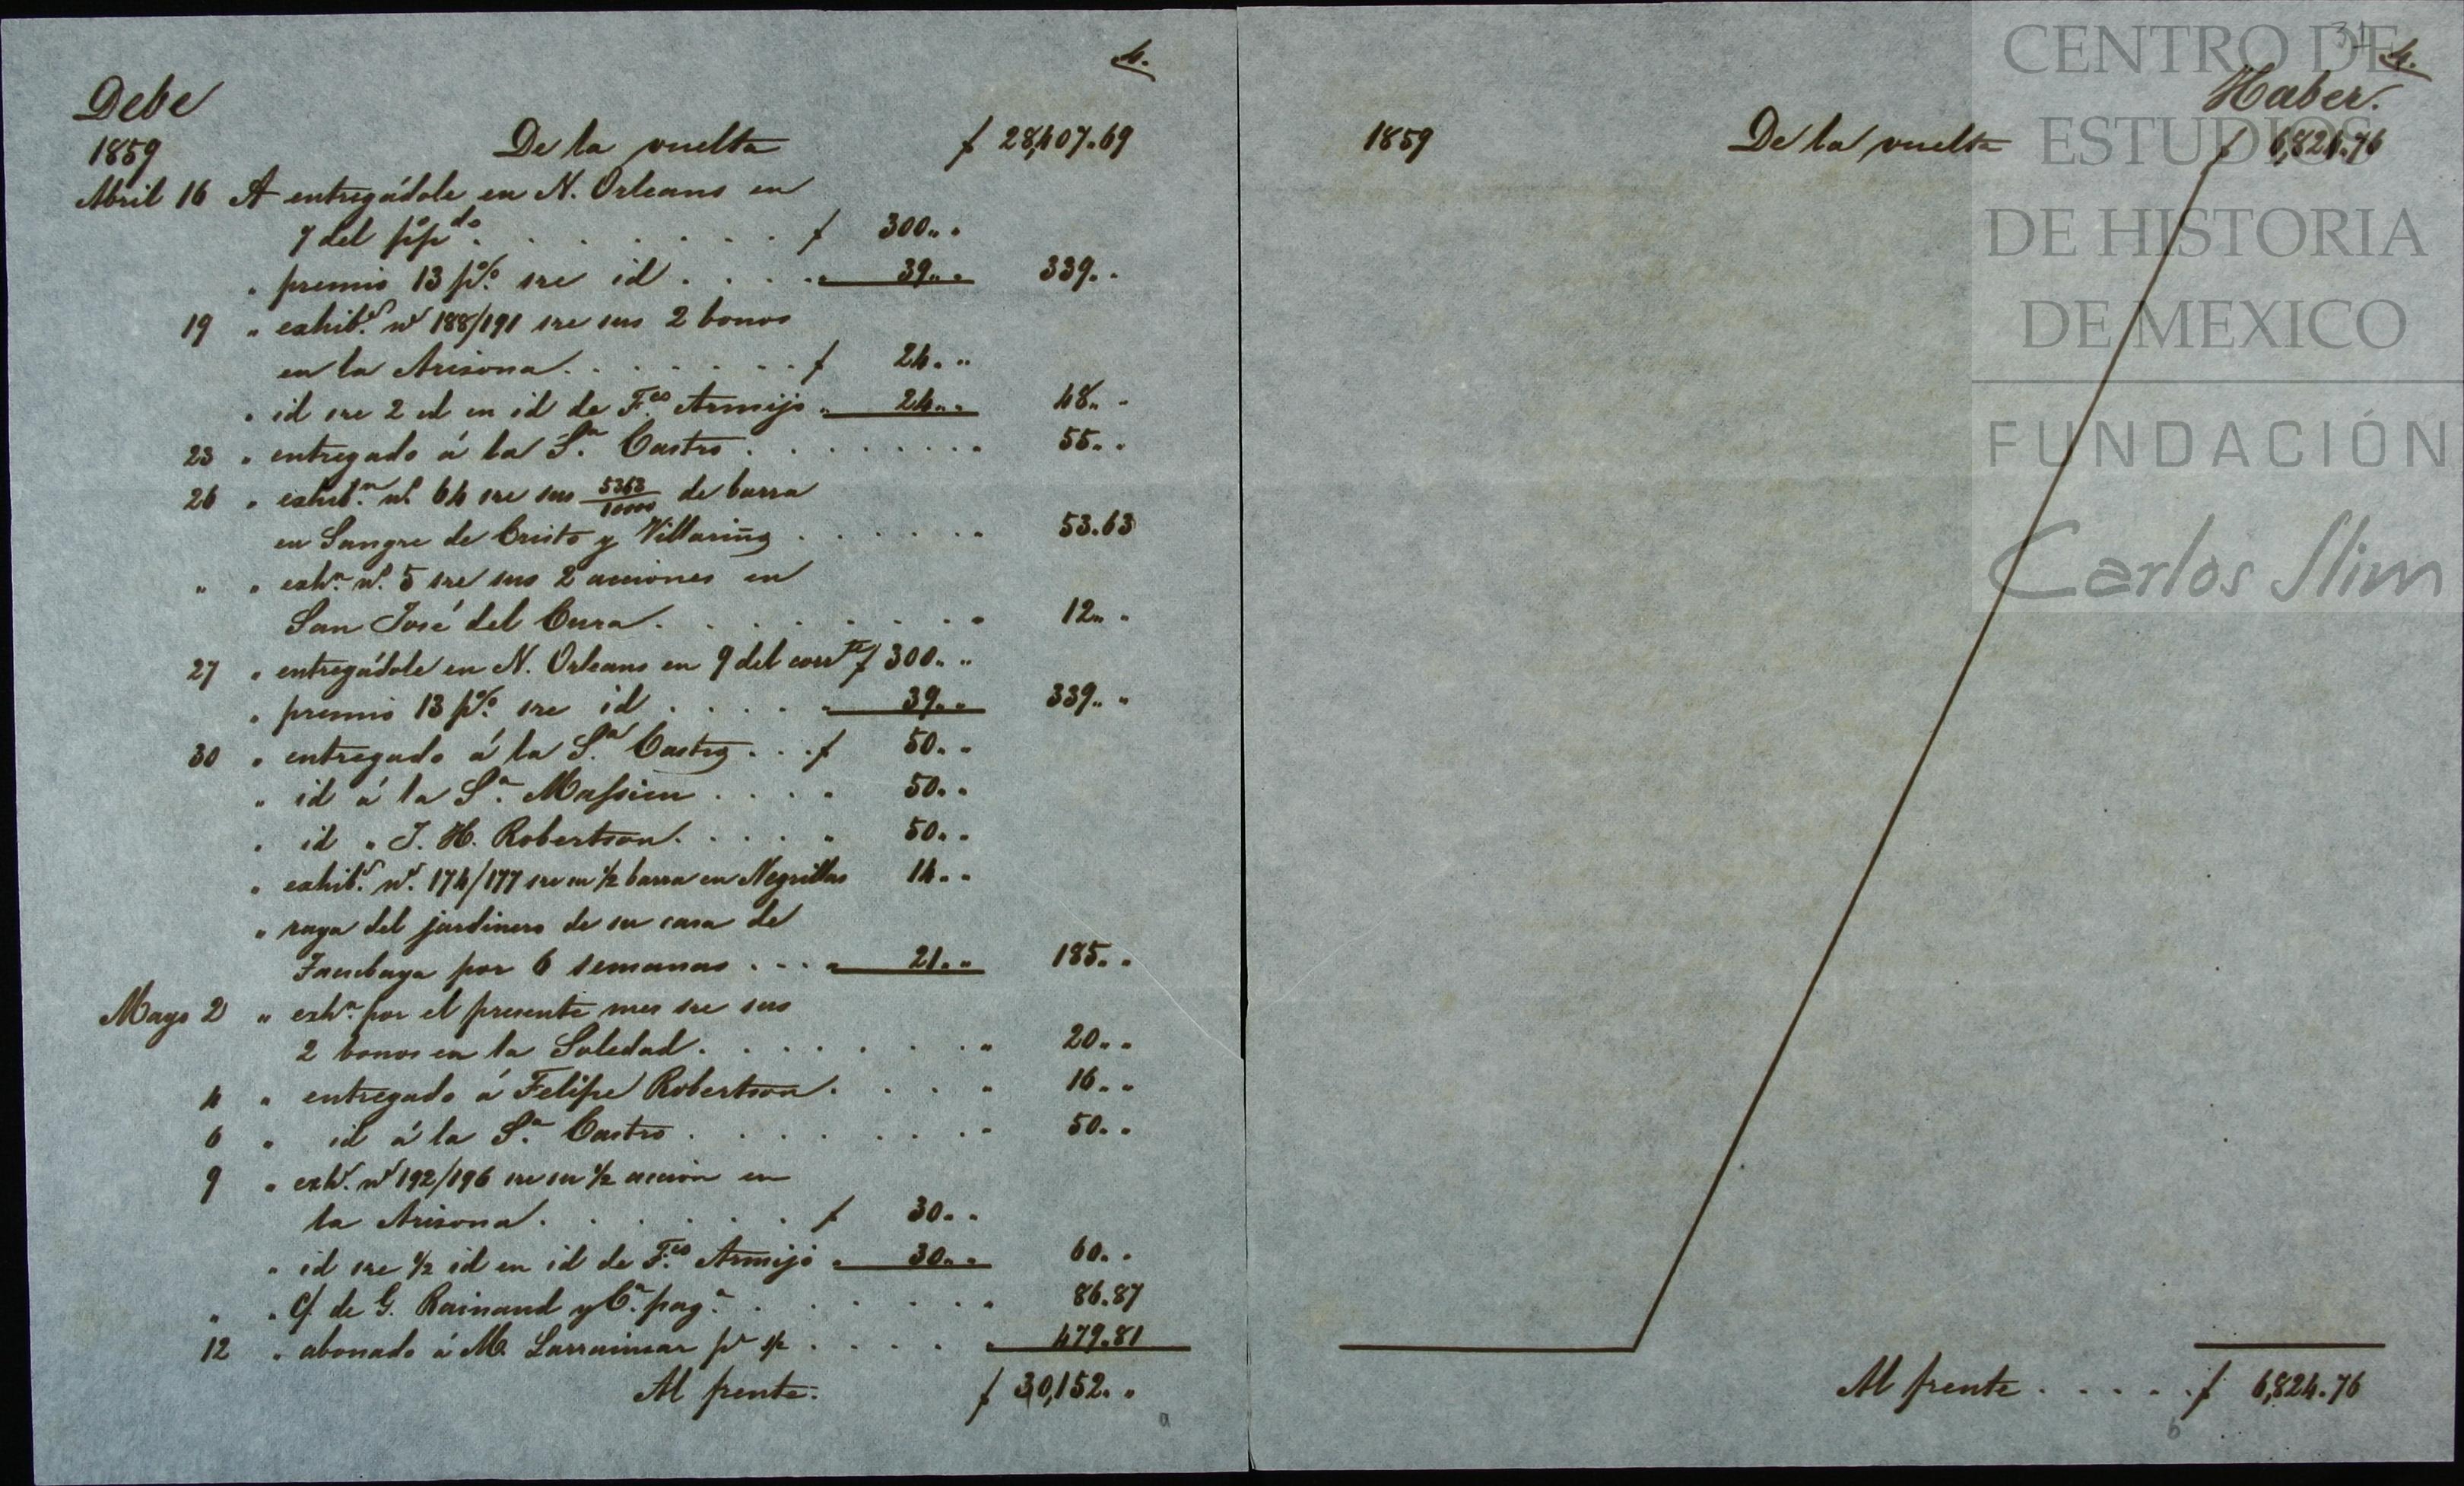 4.
Debe
1859 De la vuelta $ 28,407.69
Abril 16 A entregádole en N. Orleans en
7 del p°p° do. . . . . . . . $ 300.. .
" premio 13 p% sre id . . . . " 39.. . 339. .
19 " exhibs. ns 188/191 sre sus 2 bonos
en la Arizona . . . . . . . $ 24. ..
" id sre 2 id en id de F.co Armijo " 24.. . 48.. .
23 " entregado á la Sa. Castro . . . . . . . . " 55.. .
26 " exhib.n n°. 64 sre sus 5363/10000 de barra
en Sangre de Cristo y Villariño . . . . . . " 53.63
" " exh.n n°. 5 sre sus 2 acciones en
San José del Cura . . . . . . . . " 12.. .
27 " entregádole en N. Orleans en 9 del corrte $ 300.. ..
" premio 13 p% sre id . . . . " 39.. . 339.. "
30 " entregado á la Sa. Castro . . . $ 50. .
" id á la Sa. Massieu . . . . " 50. .
" id " J. H. Robertson . . . . . " 50. .
" exhibs. ns. 174/177 sre su ½ barra en Negrillas 14. .
" raya del jardinero de su casa de
Tacubaya por 6 semanas . . . " 21. .. 185. .
Mayo 2 " exh.n por el presente mes sre sus
2 bonos en la Soledad . . . . . . . . " 20. .
4 " entregado á Felipe Robertson . . . . " 16. .
6 " id á la Sa. Castro . . . . . . . . " 50. .
9 " exhs. ns 192/196 sre su ½ accion en
la Arizona . . . . . . . $ 30. .
" id sre ½ id en id de F.co Armijo " 30.. . 60.. .
" " C/ de G. Rainaud y Ca. pag.a . . . . . . . " 86.87
12 " abonado á M. Larrainzar pr . . . . " 479.81
Al frente. $ 30,152. .
a
34
4.
Haber.
1859 De la vuelta $ 6,824.76
Al frente . . . . . $ 6,824.76
b
CENTRO DE
ESTUDIOS
DE HISTORIA
DE MEXICO
FUNDACIÓN
Carlos Slim